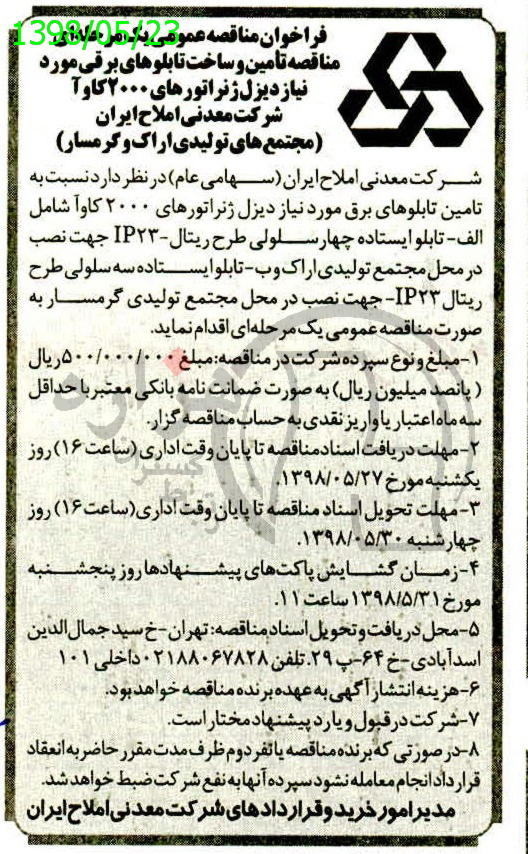 1398/05/23
فراخوان مناقصه عمومی یک مرحله‌ای
مناقصه تأمین و ساخت تابلوهای برقی مورد
نیاز دیزل ژنراتورهای ۲۰۰۰ کاوآ
شرکت معدنی املاح ایران
(مجتمع‌های تولیدی اراک و گرمسار)
شرکت معدنی املاح ایران (سهامی عام) در نظر دارد نسبت به
تامین تابلوهای برق مورد نیاز دیزل ژنراتورهای ۲۰۰۰ کاوآ شامل
الف- تابلو ایستاده چهار سلولی طرح ریتال-IP۲۳ جهت نصب
در محل مجتمع تولیدی اراک و ب- تابلو ایستاده سه سلولی طرح
ریتال IP۲۳- جهت نصب در محل مجتمع تولیدی گرمسار به
صورت مناقصه عمومی یک مرحله‌ای اقدام نماید.
۱- مبلغ و نوع سپرده شرکت در مناقصه: مبلغ ۵۰۰/۰۰۰/۰۰۰ ریال
( پانصد میلیون ریال) به صورت ضمانت نامه بانکی معتبر با حداقل
سه ماه اعتبار یا واریز نقدی به حساب مناقصه گزار.
۲- مهلت دریافت اسناد مناقصه تا پایان وقت اداری (ساعت ۱۶) روز
یکشنبه مورخ ۱۳۹۸/۰۵/۲۷.
۳- مهلت تحویل اسناد مناقصه تا پایان وقت اداری (ساعت ۱۶) روز
چهارشنبه ۱۳۹۸/۰۵/۳۰.
۴- زمان گشایش پاکت‌های پیشنهادها روز پنجشنبه
مورخ ۱۳۹۸/۵/۳۱ ساعت ۱۱.
۵- محل دریافت و تحویل اسناد مناقصه: تهران- خ سید جمال الدین
اسدآبادی- خ ۶۴- پ ۲۹. تلفن ۰۲۱۸۸۰۶۷۸۲۸ داخلی ۱۰۱
۶- هزینه انتشار آگهی به عهده برنده مناقصه خواهد بود.
۷- شرکت در قبول و یا رد پیشنهاد مختار است.
۸- در صورتی که برنده مناقصه یا نفر دوم ظرف مدت مقرر حاضر به انعقاد
قرارداد انجام معامله نشود سپرده آنها به نفع شرکت ضبط خواهد شد.
مدیر امور خرید و قراردادهای شرکت معدنی املاح ایران